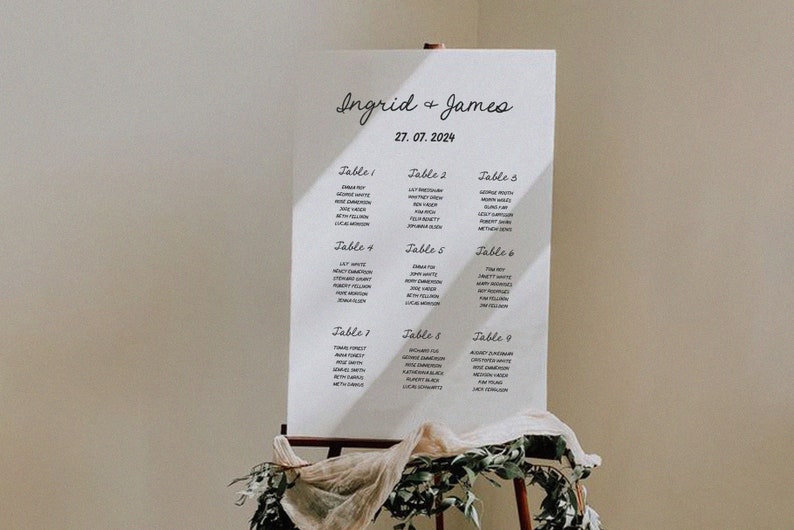 Ingrid & James
27. 07. 2024
Table 1
EMMA ROY
GEORGE WHITE
ROSE EMMERSON
JODE VADER
BETH FELLDON
LUCAS MORISON
Table 2
LILY BREDSHAW
WHITNEY DREW
BEN VADER
KIM RICH
FELIX BENETT
JOHANNA OLSEN
Table 3
GEORGE
MORIN
LESLY GARISSON
ROBERT SWAN
METHEW DENIS
Table 4
LILY WHITE
NENCY EMMERSON
STEWARD GRANT
ROBERT FELLDON
HOPE MORISON
JENNA OLSEN
Table 5
EMMA FOX
JOHN WHITE
RORY EMMERSON
JODE VADER
BETH FELLDON
LUCAS MORISON
Table 6
TOM ROY
JANETT WHITE
MARY RODRIGES
ROY RODRIGES
KIM FELLDON
JIM FELLDON
Table 7
TOMAS FOREST
ANNA FOREST
ROSE SMITH
SEMUEL SMITH
BETH DARIUS
METH DARIUS
Table 8
RICHARD FOS
GEORGE EMMERSON
ROSE EMMERSON
KATHERINA BLACK
RUPERT BLACK
LUCAS SCHWARTZ
Table 9
AUDREY ZUKERMAN
CRISTOFER WHITE
ROSE EMMERSON
MEDISON VADER
KIM YOUNG
JACK FERGUSON